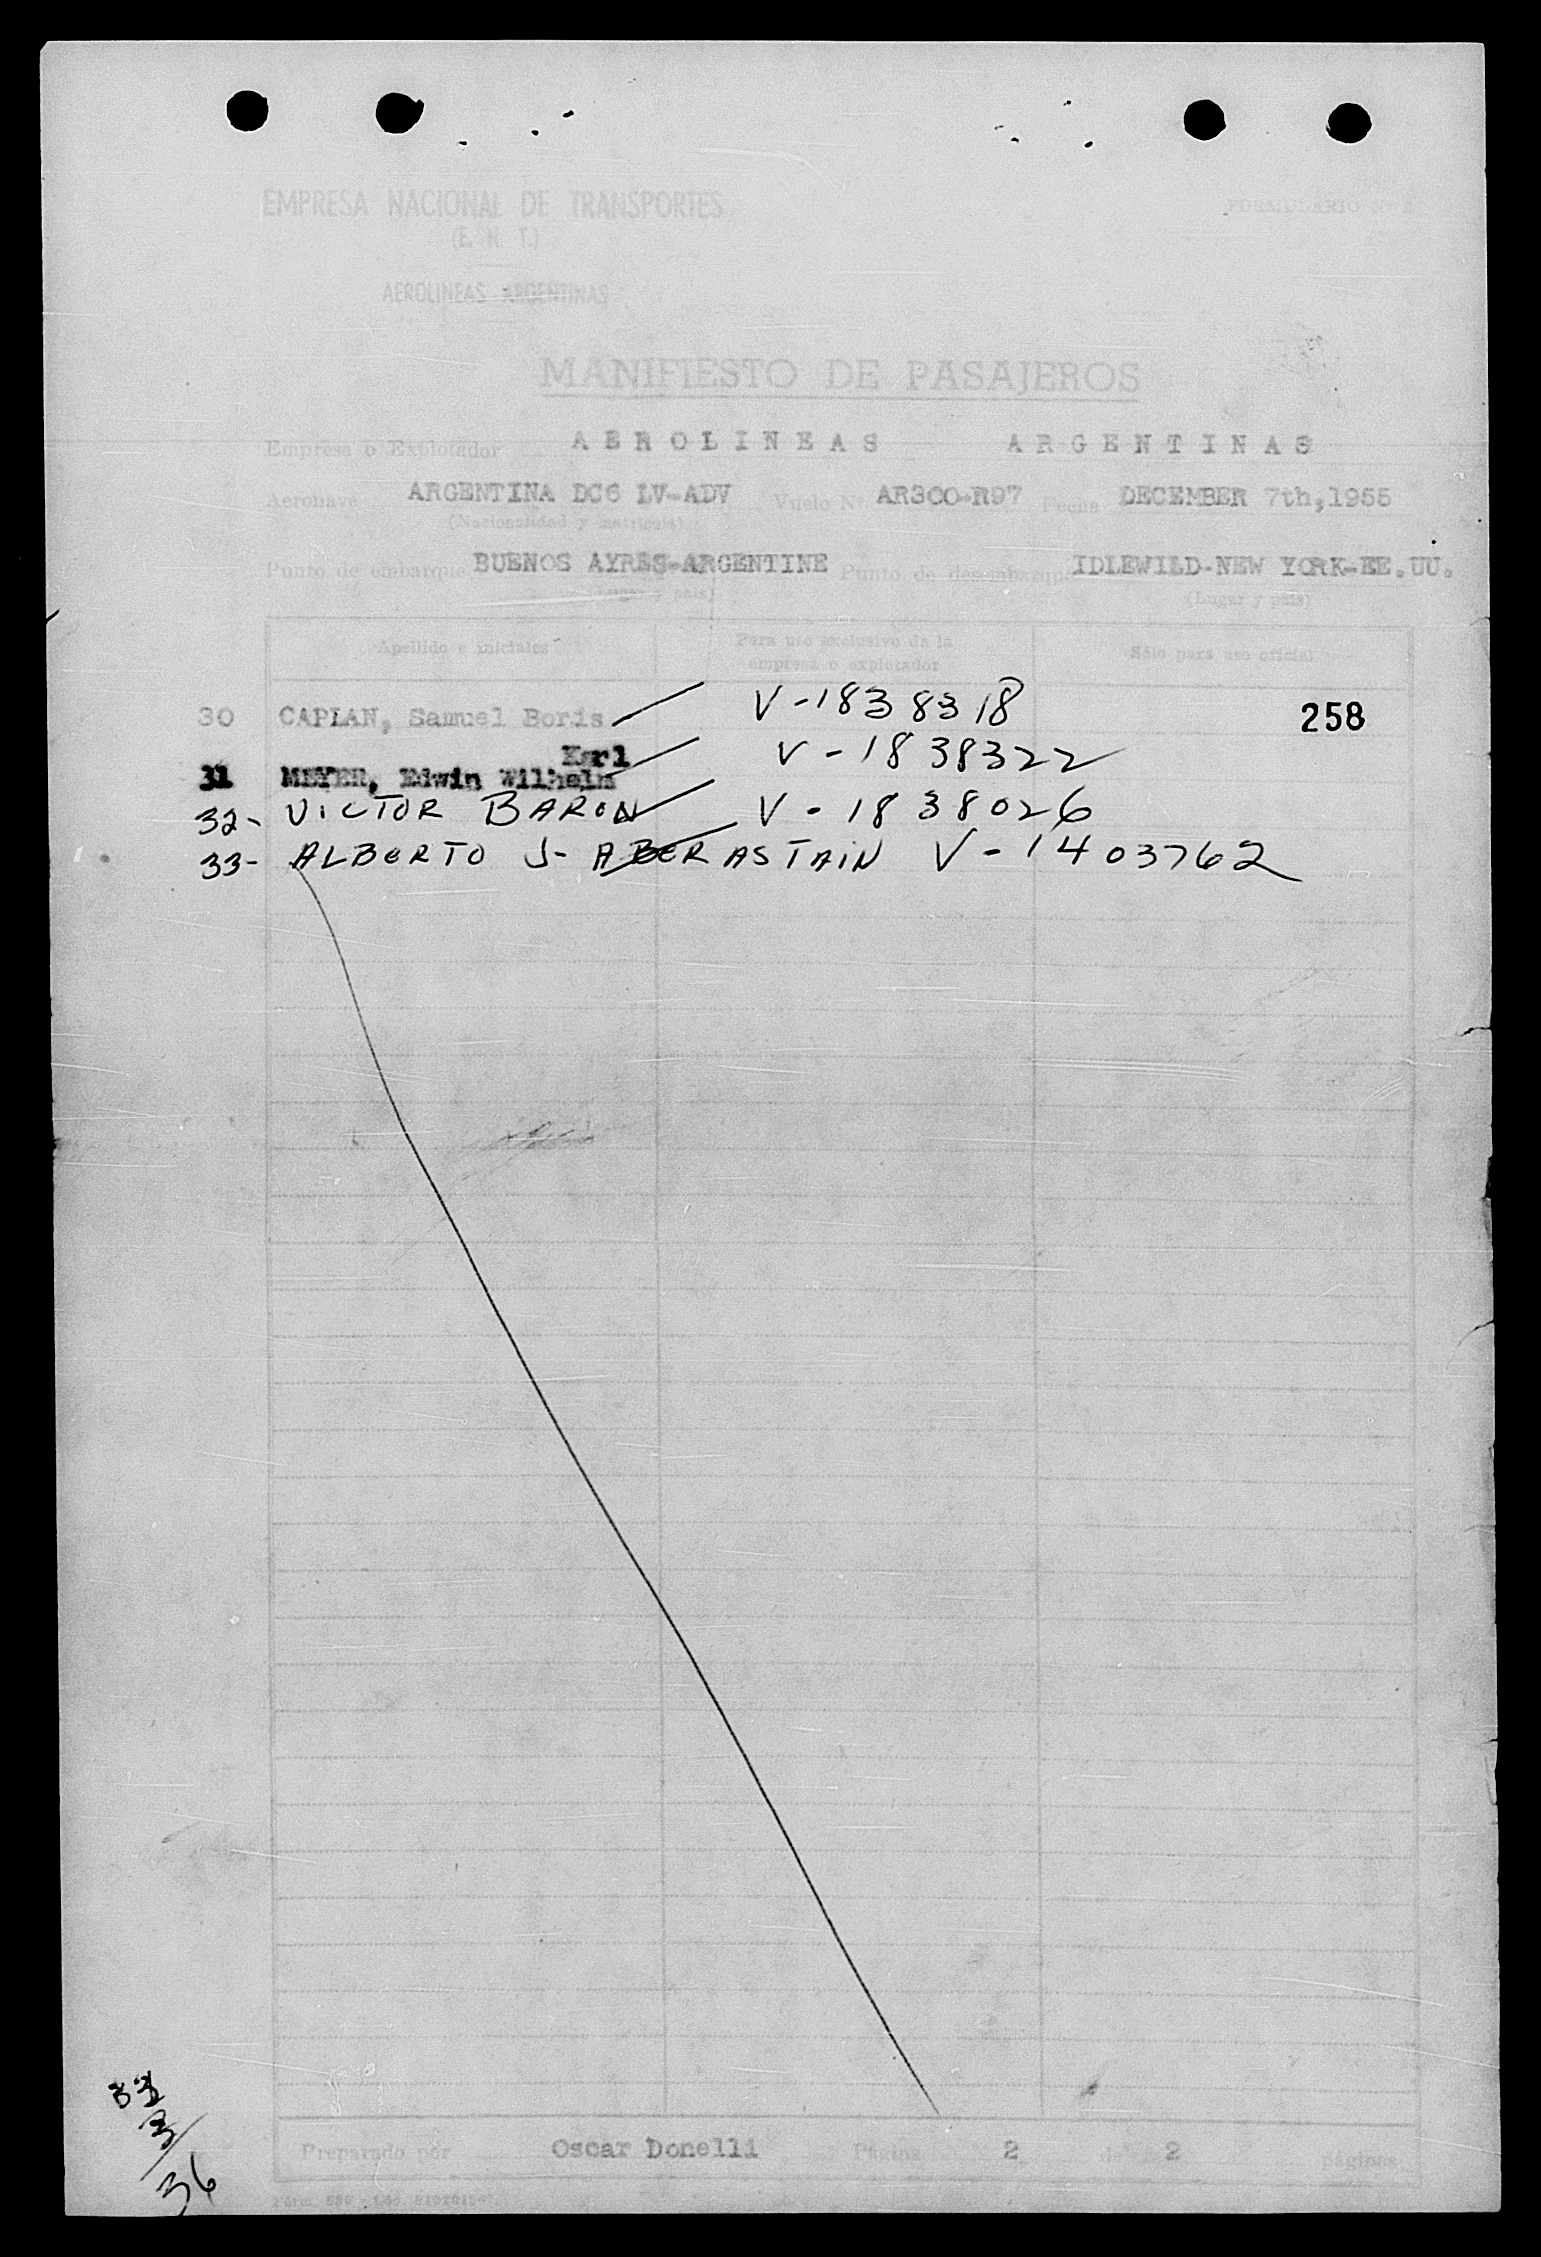 EMPRESA NACIONAL DE TRANSPORTES
(E. N. T.)
FORMULARIO Nº
AEROLINEAS ARGENTINAS
MANIFIESTO DE PASAJEROS
Empresa o Explotador AEROLINEAS ARGENTINAS
Aeronave ARGENTINA DC6 LV-ADV Vuelo Nº AR300-R97 Fecha DECEMBER 7th,1955
(Nacionalidad y matrícula)
Punto de embarque BUENOS AYRES-ARGENTINE Punto de desembarque IDLEWILD-NEW YORK-EE.UU.
(Lugar y país) (Lugar y país)
Apellido e iniciales Para uso exclusivo de la empresa o explotador Sólo para uso oficial
30 CAPLAN, Samuel Boris V-1838318 258
Karl
31 MEYER, Edwin Wilhelm V-1838322
32- VICTOR BARON V-1838026
33- ALBERTO J- ABERASTAIN V-1403762
33
3
36
Preparado por Oscar Donelli Página 2 de 2 páginas